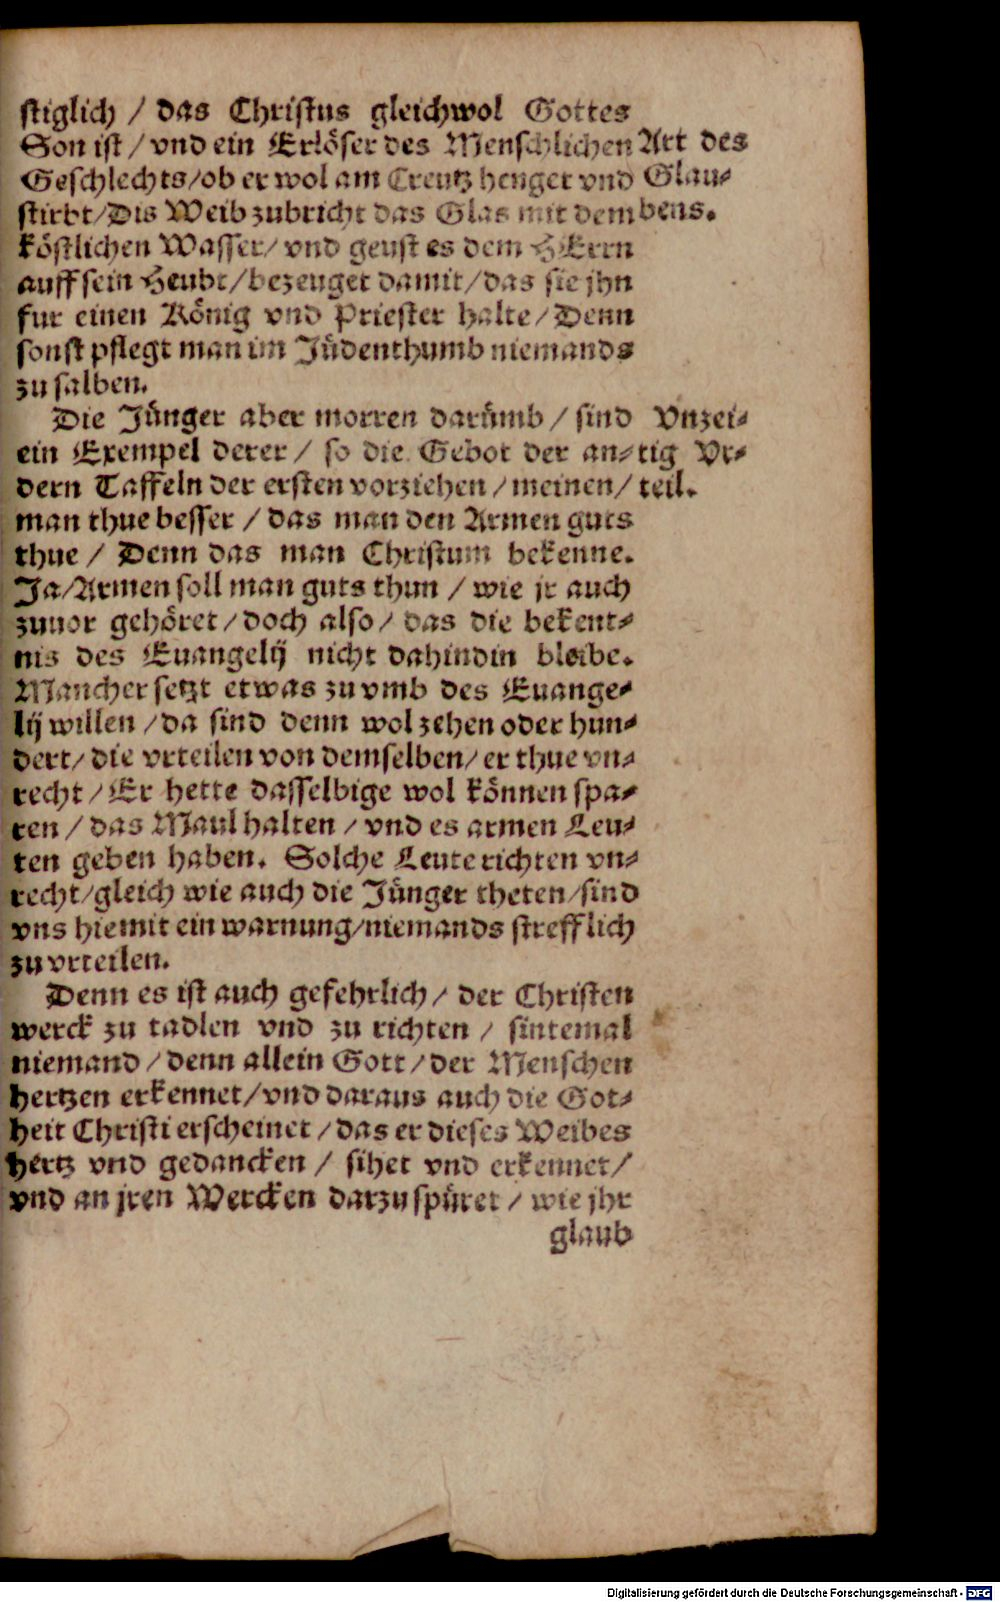 stiglich / das Christus gleichwol Gottes
Son ist / vnd ein Erlöser des Menschlichen
Geschlechts/ob er wol am Creutz henget vnd
stirbt/Dis Weib zubricht das Glas mit dem
köstlichen Wasser/ vnd geust es dem HErrn
auff sein Heubt/bezeuget damit/das sie jhn
fur einen König vnd Priester halte/Denn
sonst pflegt man im Jüdenthumb niemands
zu salben.
Art des
Glau-
bens.
Die Jünger aber morren darümb / sind
ein Exempel derer / so die Gebot der an-
dern Taffeln der ersten vorziehen / meinen/
man thue besser / das man den Armen guts
thue / Denn das man Christum bekenne.
Ja/Armen soll man guts thun / wie jr auch
zuuor gehöret/doch also/ das die bekent-
nis des Euangelij nicht dahindin bleibe.
Mancher setzt etwas zu vmb des Euange-
lij willen /da sind denn wol zehen oder hun-
dert/die vrteilen von demselben/er thue vn-
recht/Er hette dasselbige wol können spa-
ren / das Maul halten / vnd es armen Leu-
ten geben haben. Solche Leute richten vn-
recht/gleich wie auch die Jünger theten/sind
vns hiemit ein warnung/niemands strefflich
zu vrteilen.
Vnzei-
tig Vr-
teil.
Denn es ist auch gefehrlich/ der Christen
werck zu tadlen vnd zu richten / sintemal
niemand/denn allein Gott/der Menschen
hertzen erkennet/vnd daraus auch die Got-
heit Christi erscheinet/das er dieses Weibes
hertz vnd gedancken / sihet vnd erkennet/
vnd an jren Wercken darzu spüret / wie jhr
glaub
Digitalisierung gefördert durch die Deutsche Forschungsgemeinschaft - DFG